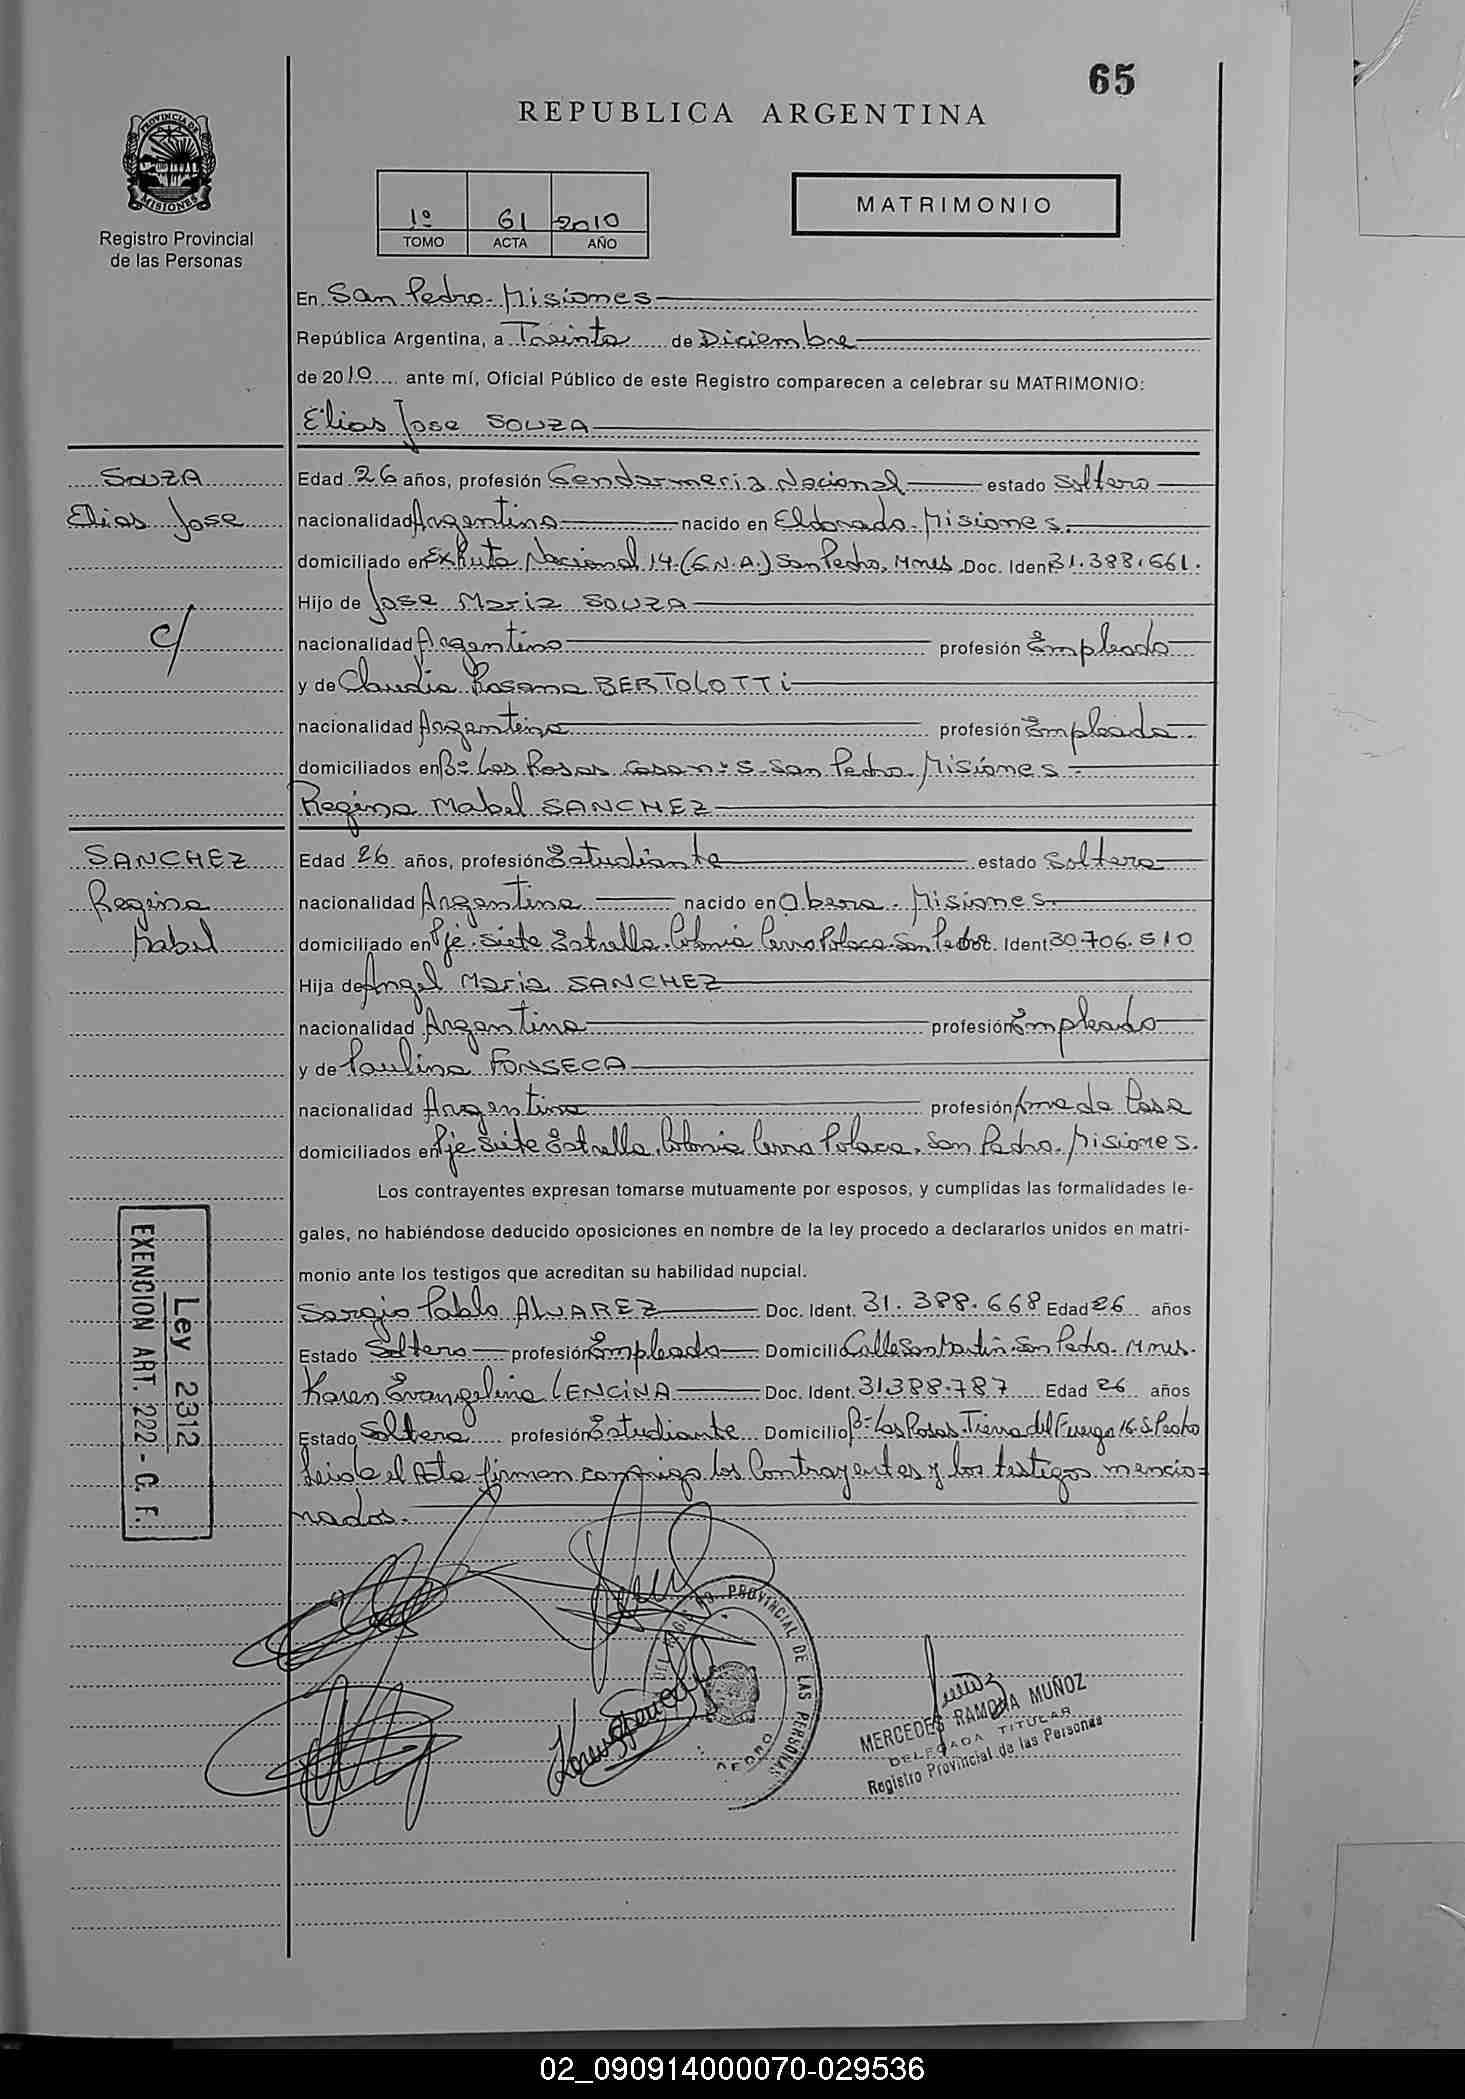 65
REPUBLICA ARGENTINA
PROVINCIA DE
MISIONES
Registro Provincial
de las Personas
1º 61 2010
TOMO ACTA AÑO
MATRIMONIO
En San Pedro - Misiones
República Argentina, a Treinta de Diciembre
de 2010 ante mí, Oficial Público de este Registro comparecen a celebrar su MATRIMONIO:
Elias Jose SOUZA
SOUZA
Elias Jose
c/
Edad 26 años, profesión Gendarmeria Nacional estado Soltero
nacionalidad Argentina nacido en Eldorado - Misiones.
domiciliado en Ex Ruta Nacional 14 (G.N.A.) San Pedro, Mnes Doc. Ident 31.388.661.
Hijo de Jose Maria SOUZA
nacionalidad Argentino profesión Empleado
y de Claudia Rosana BERTOLOTTi
nacionalidad Argentina profesión Empleada
domiciliados en Bº Las Rosas casa nº 5 - San Pedro - Misiones.
Regina Mabel SANCHEZ
SANCHEZ
Regina
Mabel
Edad 26 años, profesión Estudiante estado Soltera
nacionalidad Argentina nacido en Obera - Misiones.
domiciliado en Pje. Siete Estrella. Colonia Cerro Polaca. San Pedro Doc. Ident 30.706.510
Hija de Angel Maria SANCHEZ
nacionalidad Argentina profesión Empleado
y de Paulina FONSECA
nacionalidad Argentina profesión Ama de Casa
domiciliados en Pje Siete Estrella. Colonia Cerro Polaca. San Pedro - Misiones.
Los contrayentes expresan tomarse mutuamente por esposos, y cumplidas las formalidades le-
gales, no habiéndose deducido oposiciones en nombre de la ley procedo a declararlos unidos en matri-
monio ante los testigos que acreditan su habilidad nupcial.
Sergio Pablo ALVAREZ Doc. Ident. 31.388.668 Edad 26 años
Estado Soltero profesión Empleado Domicilio Calle San Martin. San Pedro - Mnes.
Karen Evangelina LENCiNA Doc. Ident. 31.388.787 Edad 26 años
Estado Soltera profesión Estudiante Domicilio Bº Las Rosas. Tierra del Fuego 16 - S. Pedro
Leida el Acta firman conmigo los Contrayentes y los testigos mencio=
nados.
Ley 2312
EXENCION ART. 222 - C. F.
PROVINCIAL DE LAS PERSONAS
PEDRO
MERCEDES RAMONA MUÑOZ
DELEGADA TITULAR
Registro Provincial de las Personas
02_090914000070-029536